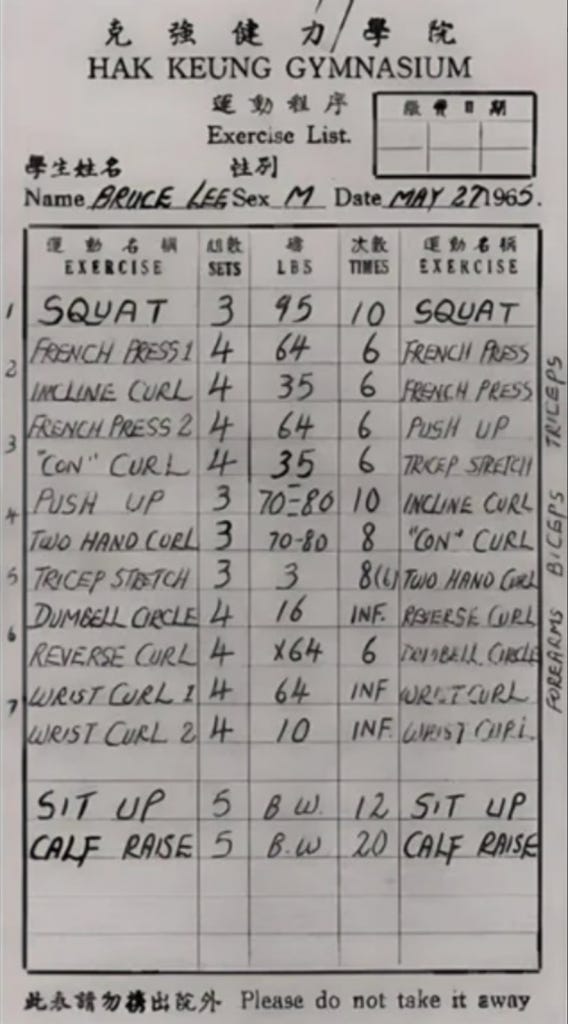 克強健力學院
HAK KEUNG GYMNASIUM
運動程序
Exercise List.
繳費日期
學生姓名 性別
Name BRUCE LEE Sex M Date MAY 27 1965.
運動名稱 組數 磅 次數 運動名稱
EXERCISE SETS LBS TIMES EXERCISE
1 SQUAT 3 95 10 SQUAT
FRENCH PRESS 1 4 64 6 FRENCH PRESS
2 INCLINE CURL 4 35 6 FRENCH PRESS
FRENCH PRESS 2 4 64 6 PUSH UP
3 "CON" CURL 4 35 6 TRICEP STRETCH
PUSH UP 3 70-80 10 INCLINE CURL
4 TWO HAND CURL 3 70-80 8 "CON" CURL
5 TRICEP STRETCH 3 3 8(6) TWO HAND CURL
DUMBELL CIRCLE 4 16 INF. REVERSE CURL
6 REVERSE CURL 4 x64 6 DUMBELL CIRCLE
7 WRIST CURL 1 4 64 INF WRIST CURL
WRIST CURL 2 4 10 INF. WRIST CURL
SIT UP 5 B.W. 12 SIT UP
CALF RAISE 5 B.W 20 CALF RAISE
TRICEPS
BICEPS
FOREARMS
此表請勿携出院外 Please do not take it away